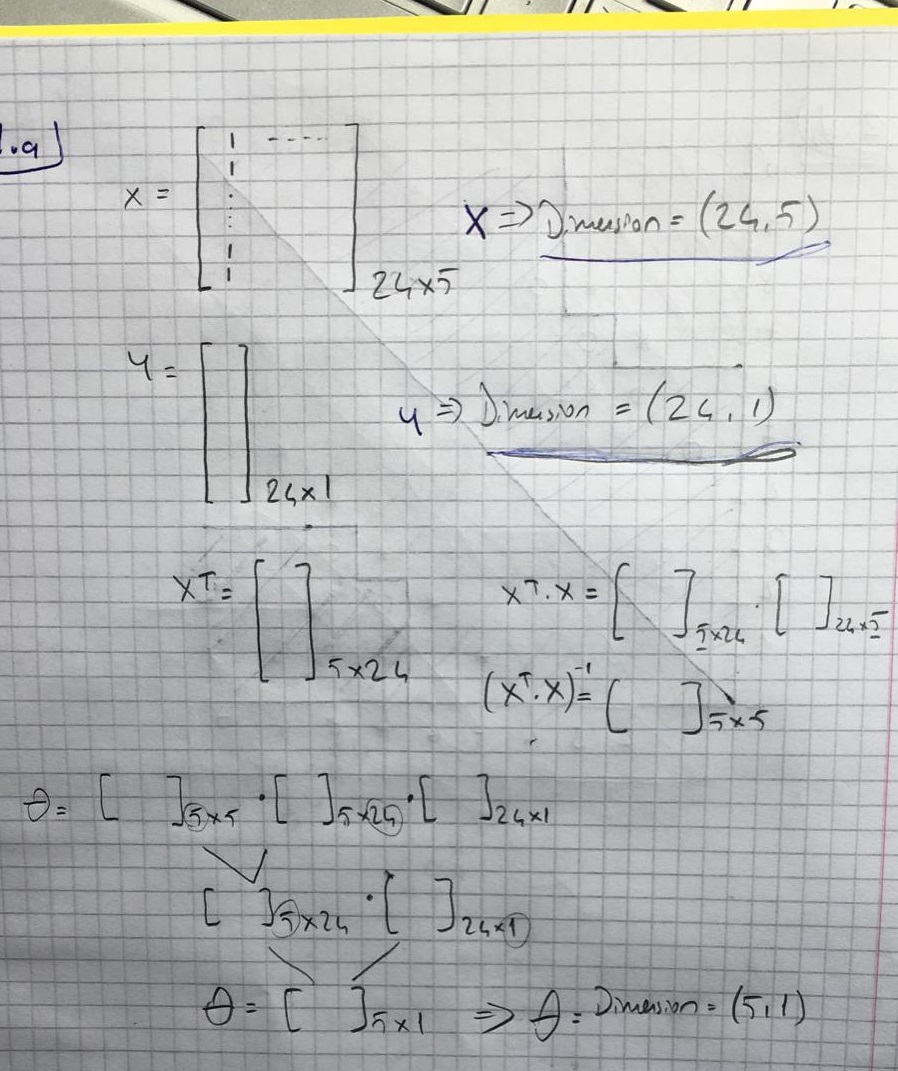 1.a
X = [ 1 ---- 1 ⋮ 1 1 ] 24×5
X => Dimension = (24,5)
y = [ ] 24×1
y => Dimension = (24,1)
X^T = [ ] 5×24
X^T.X = [ ] 5×24 · [ ] 24×5
(X^T.X)^-1 = [ ] 5×5
θ = [ ] 5×5 · [ ] 5×24 · [ ] 24×1
[ ] 5×24 · [ ] 24×1
θ = [ ] 5×1 => θ = Dimension = (5,1)